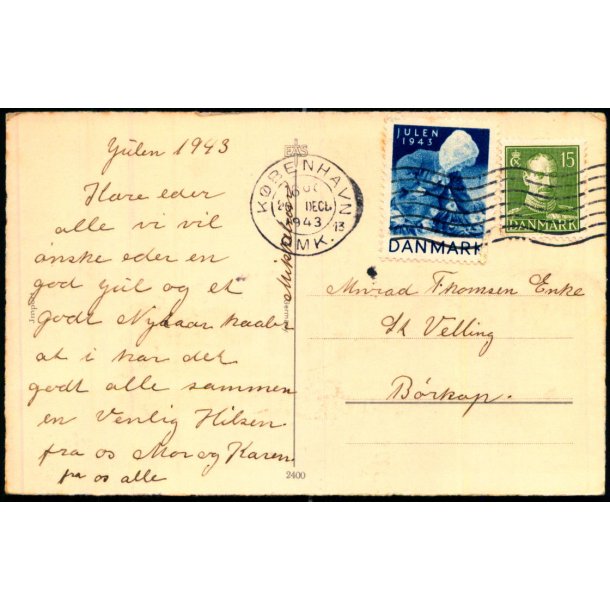 Julen 1943
Kære eder
alle vi vil
ønske eder en
god Jul og et
godt Nytaar haaber
at i har det
godt alle sammen
en Venlig Hilsen
fra os Mor og Karen
fra os alle
EAS
KØBENHAVN
DECB
1943
13
MK.
JULEN
1943
DANMARK
15
DANMARK
Thomsen Enke
St Velling
Börkop.
2400